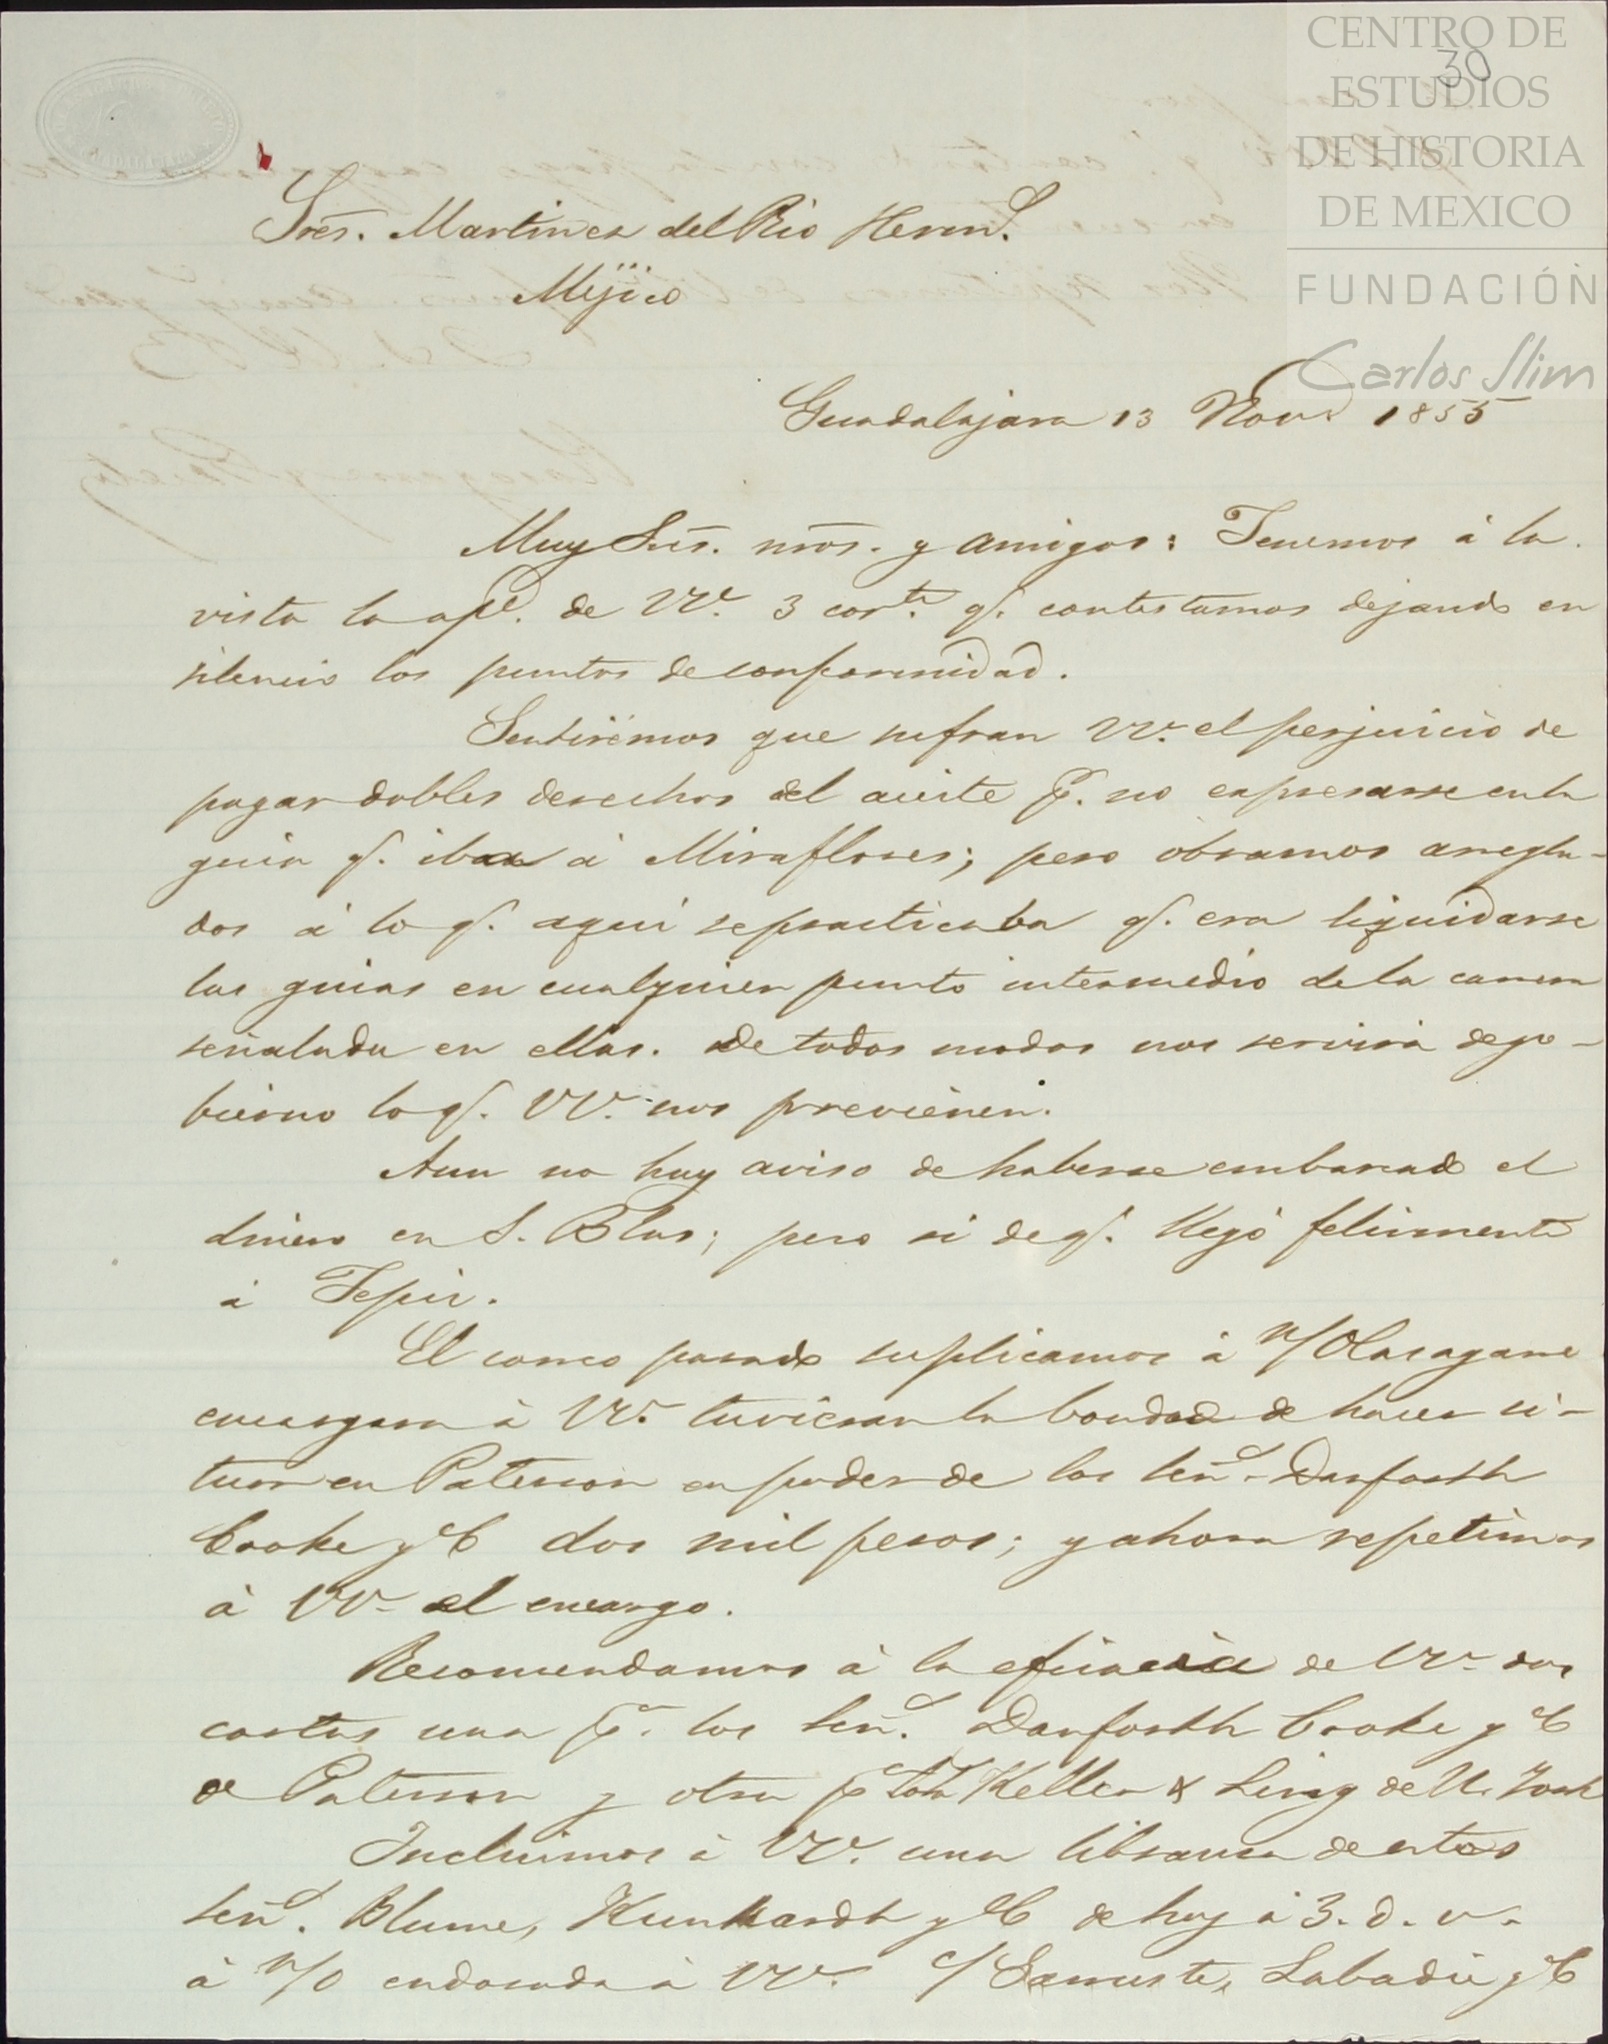 CENTRO DE
ESTUDIOS
DE HISTORIA
DE MEXICO
FUNDACIÓN
Carlos Slim
30
Sres. Martinez del Rio Herms.
Mejico
Guadalajara 13 Novе 1855
Muy Sres. nros. y amigos: Tenemos á la
vista la apе. de VV. 3 corte. q. contestamos dejando en
silencio los puntos de conformidad.
Sentirémos que sufran VV. el perjuicio de
pagar dobles derechos del aceite p. no expresarse en la
guia q. iba á Miraflores; pero obramos arregla-
dos á lo q. aqui se practicaba q. era liquidarse
las guias en cualquier punto intermedio de la carrera
señalada en ellas. De todos modos nos servirá de go-
bierno lo q. VV. nos previenen.
Aun no hay aviso de haberse embarcado el
dinero en S. Blas; pero si de q. llegó felizmente
á Tepic.
El correo pasado suplicamos á n/ Olasagarre
encargara á VV. tuvieran la bondad de hacer si-
tuar en Paterson en poder de los Señs. Danforth
Cooke y C dos mil pesos; y ahora repetimos
á VV. el encargo.
Recomendamos á la eficacia de VV. dos
cartas una pa. los Señs. Danforth Cooke y C
de Paterson y otra pa Keller & Ling de N. York
Incluimos á VV. una libranza de estos
Señs. Blume, Kunhardt y C de hoy á 3. d. v.
á n/o endosada á VV. c/ Labadie y C